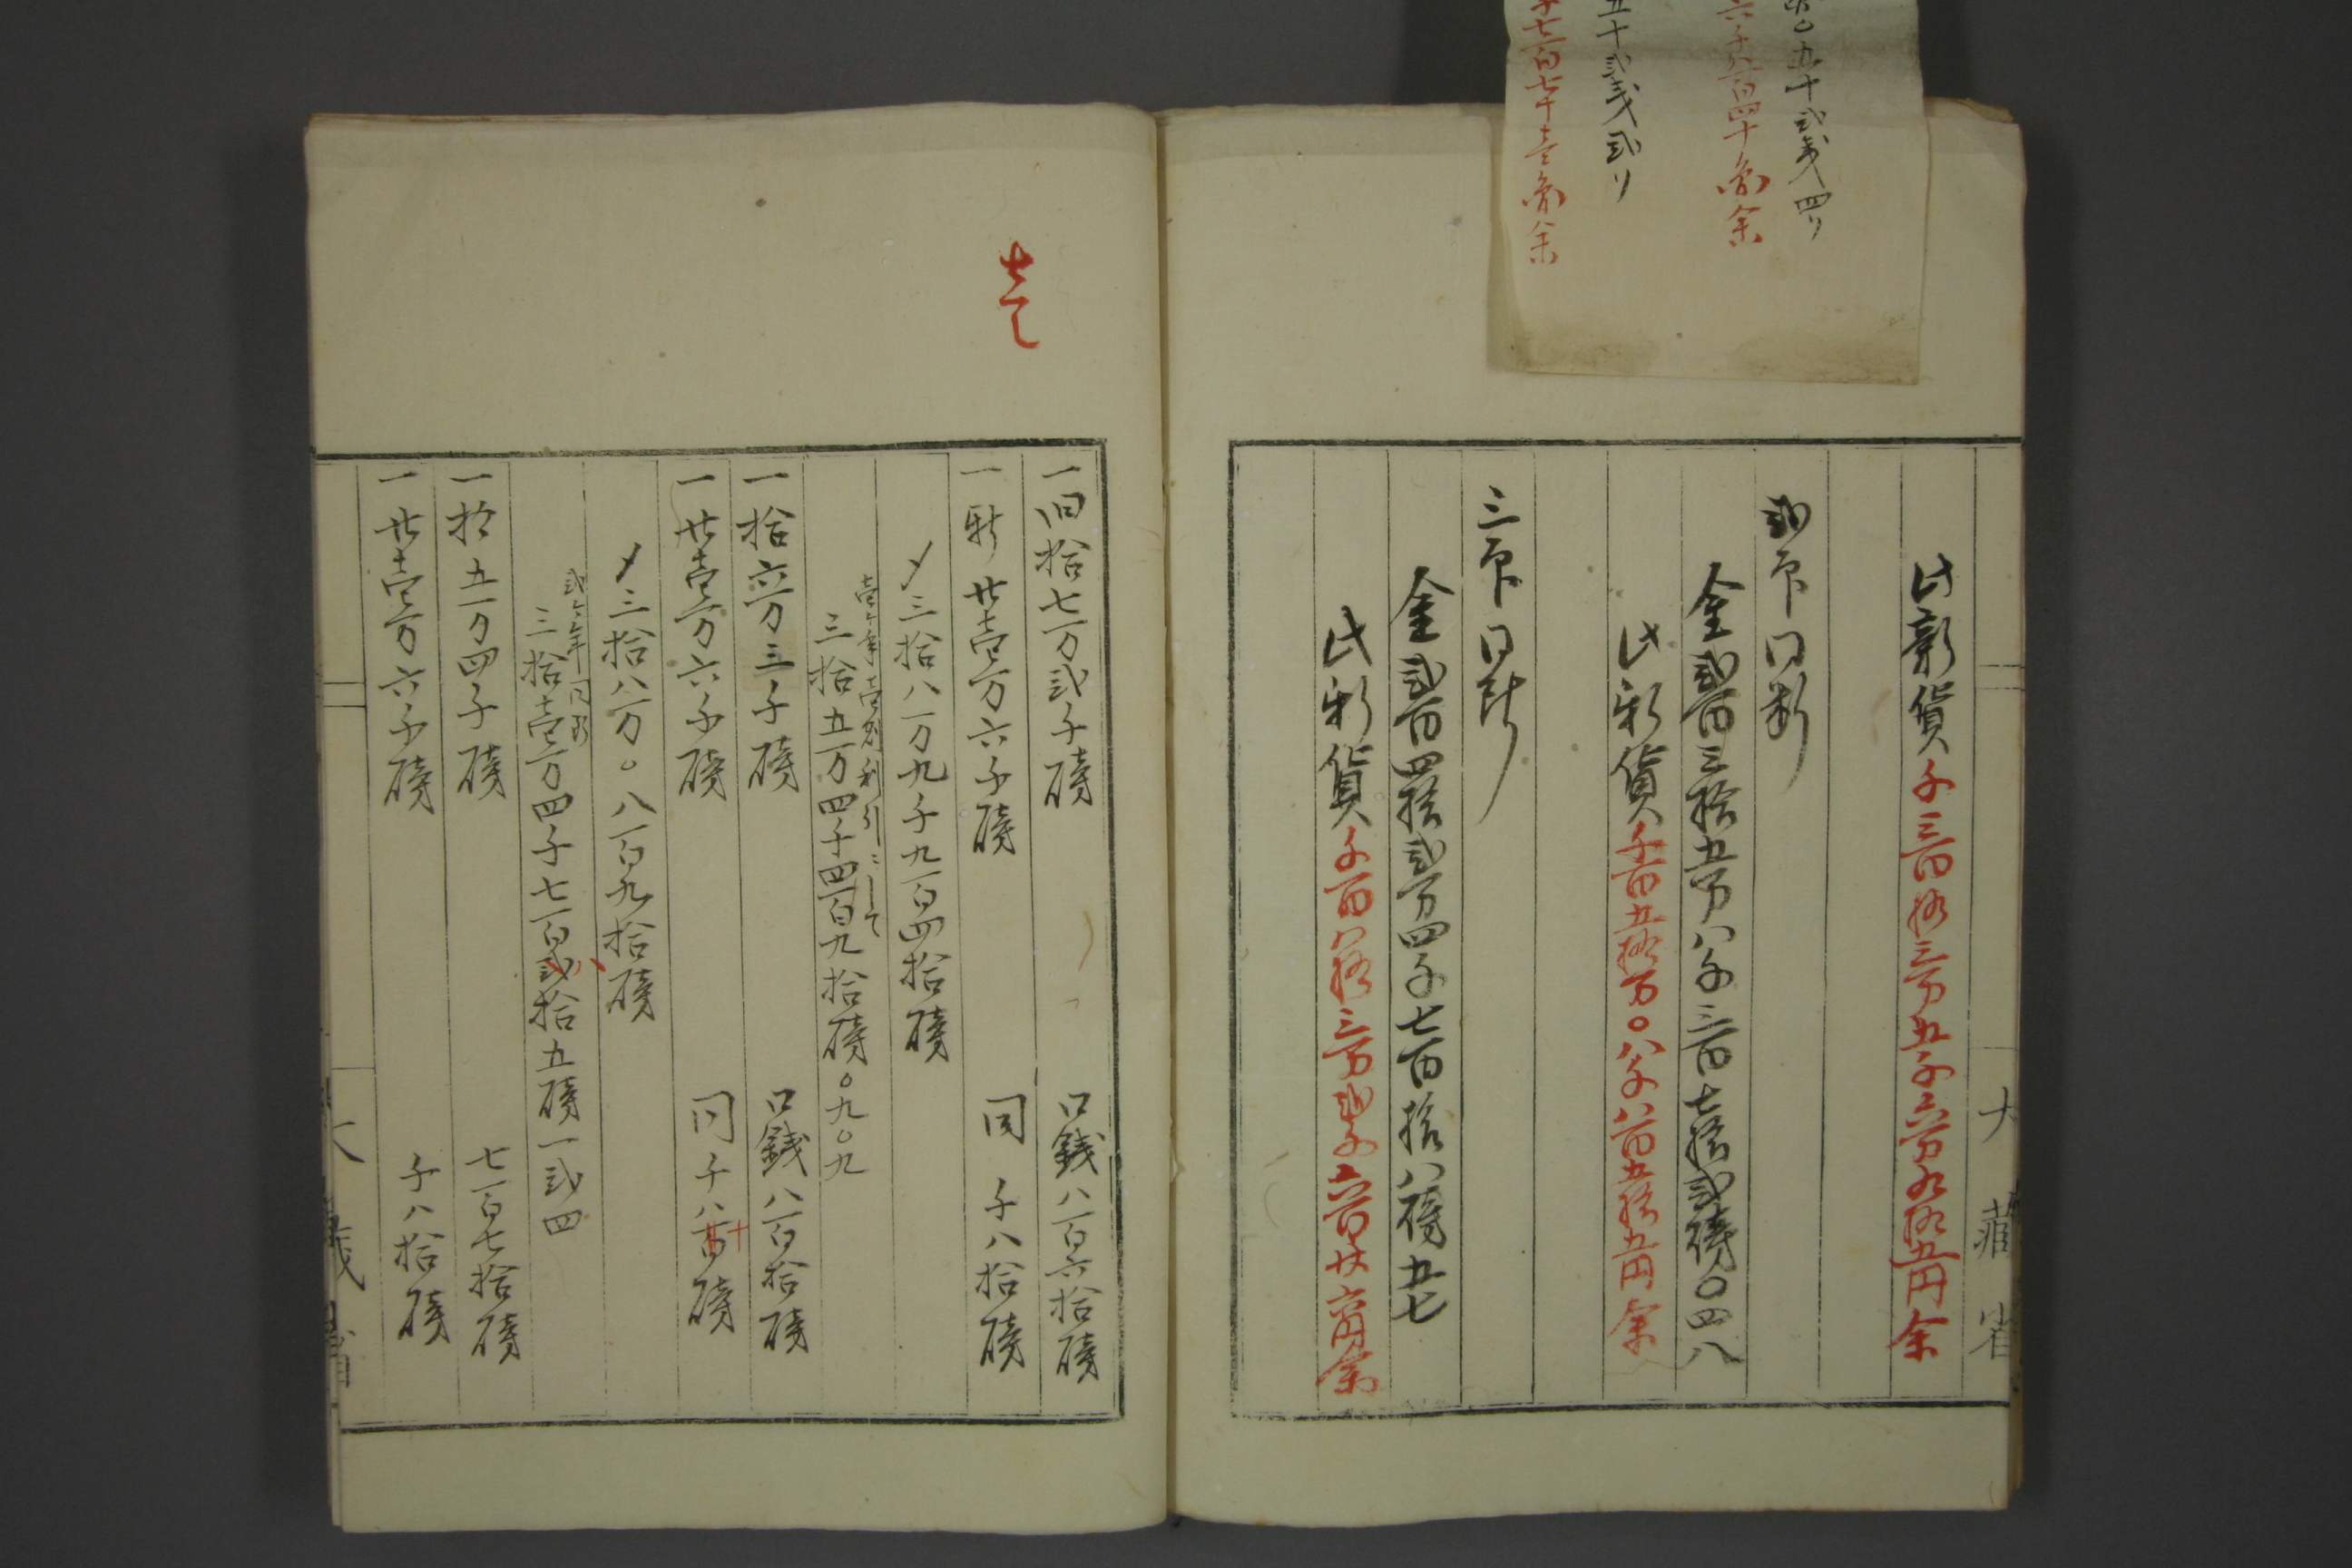 〇五十弐義四リ
六千八百四十弗余
五十弐義弐リ
千七百七十壱弗余
大蔵省
此新貨千三百拾三万五千六百九拾五円余
弐印同断
金弐百三拾五万八千三百七拾弐磅〇四八
此新貨千百五拾万〇八千八百五拾五円余
三印同断
金弐百四拾弐万四千七百拾八磅五七
此新貨千百八拾三万弐千六百廿六円余
壱
一旧拾七万弐千磅 口銭八百六拾磅
一新廿壱万六千磅 同千八拾磅
〆三拾八万九千九百四拾磅
壱ヶ年壱割利引ニして
三拾五万四千四百九拾磅〇九〇九
一拾六万三千磅 口銭八百拾磅
一廿壱万六千磅 同千八百磅
十
〆三拾八万〇八百九拾磅
弐ヶ年同断
三拾壱万四千七百弐拾五磅一弐四
八
一拾五万四千磅 七百七拾磅
一廿壱万六千磅 千八拾磅
大蔵省